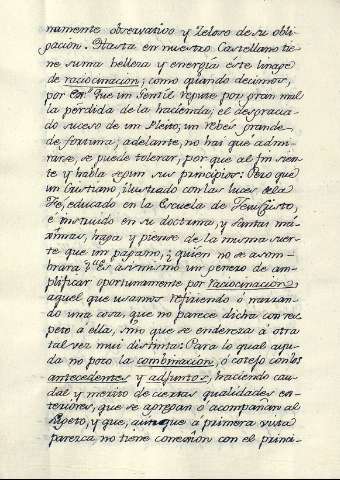 mamente observativo y zeloso de su obli-
gación. Hasta en nuestro Castellano tie-
ne suma belleza y energía éste linage
de raciocinacion; como quando decimos,
por Que un Gentil repute por gran mal
la pérdida de la hacienda, el desgracia-
do suceso de un Pleito, un rebés grande
de fortuna; adelante, no hai que admi-
rarse, se puede tolerar, por que al fin sien-
te y habla segun sus principios: Pero que
un Cristiano, ilustrado con las luces de la
Fé, educado en la Escuela de Jesu Cristo,
é instruido en su doctrina, y santas má-
ximas, haga y piense de la misma suer-
te que un pagano, ¿quien no se asom-
brará? Es asimismo un género de am-
plificar oportunamente por raciocinacion,
aquel que usamos refiriendo ó narran-
do una cosa, que no parece dicha con res-
peto á ella, sino que se endereza á otra
tal vez mui distinta: Para lo qual ayu-
da no poco la combinacion, ó cotejo con los
antecedentes y adjuntos, haciendo cau-
dal y mérito de ciertas qualidades ex-
teriores, que se agregan ó acompañan al
sugeto, y que, aunque á primera vista
parezca no tiene conexion con el princi-